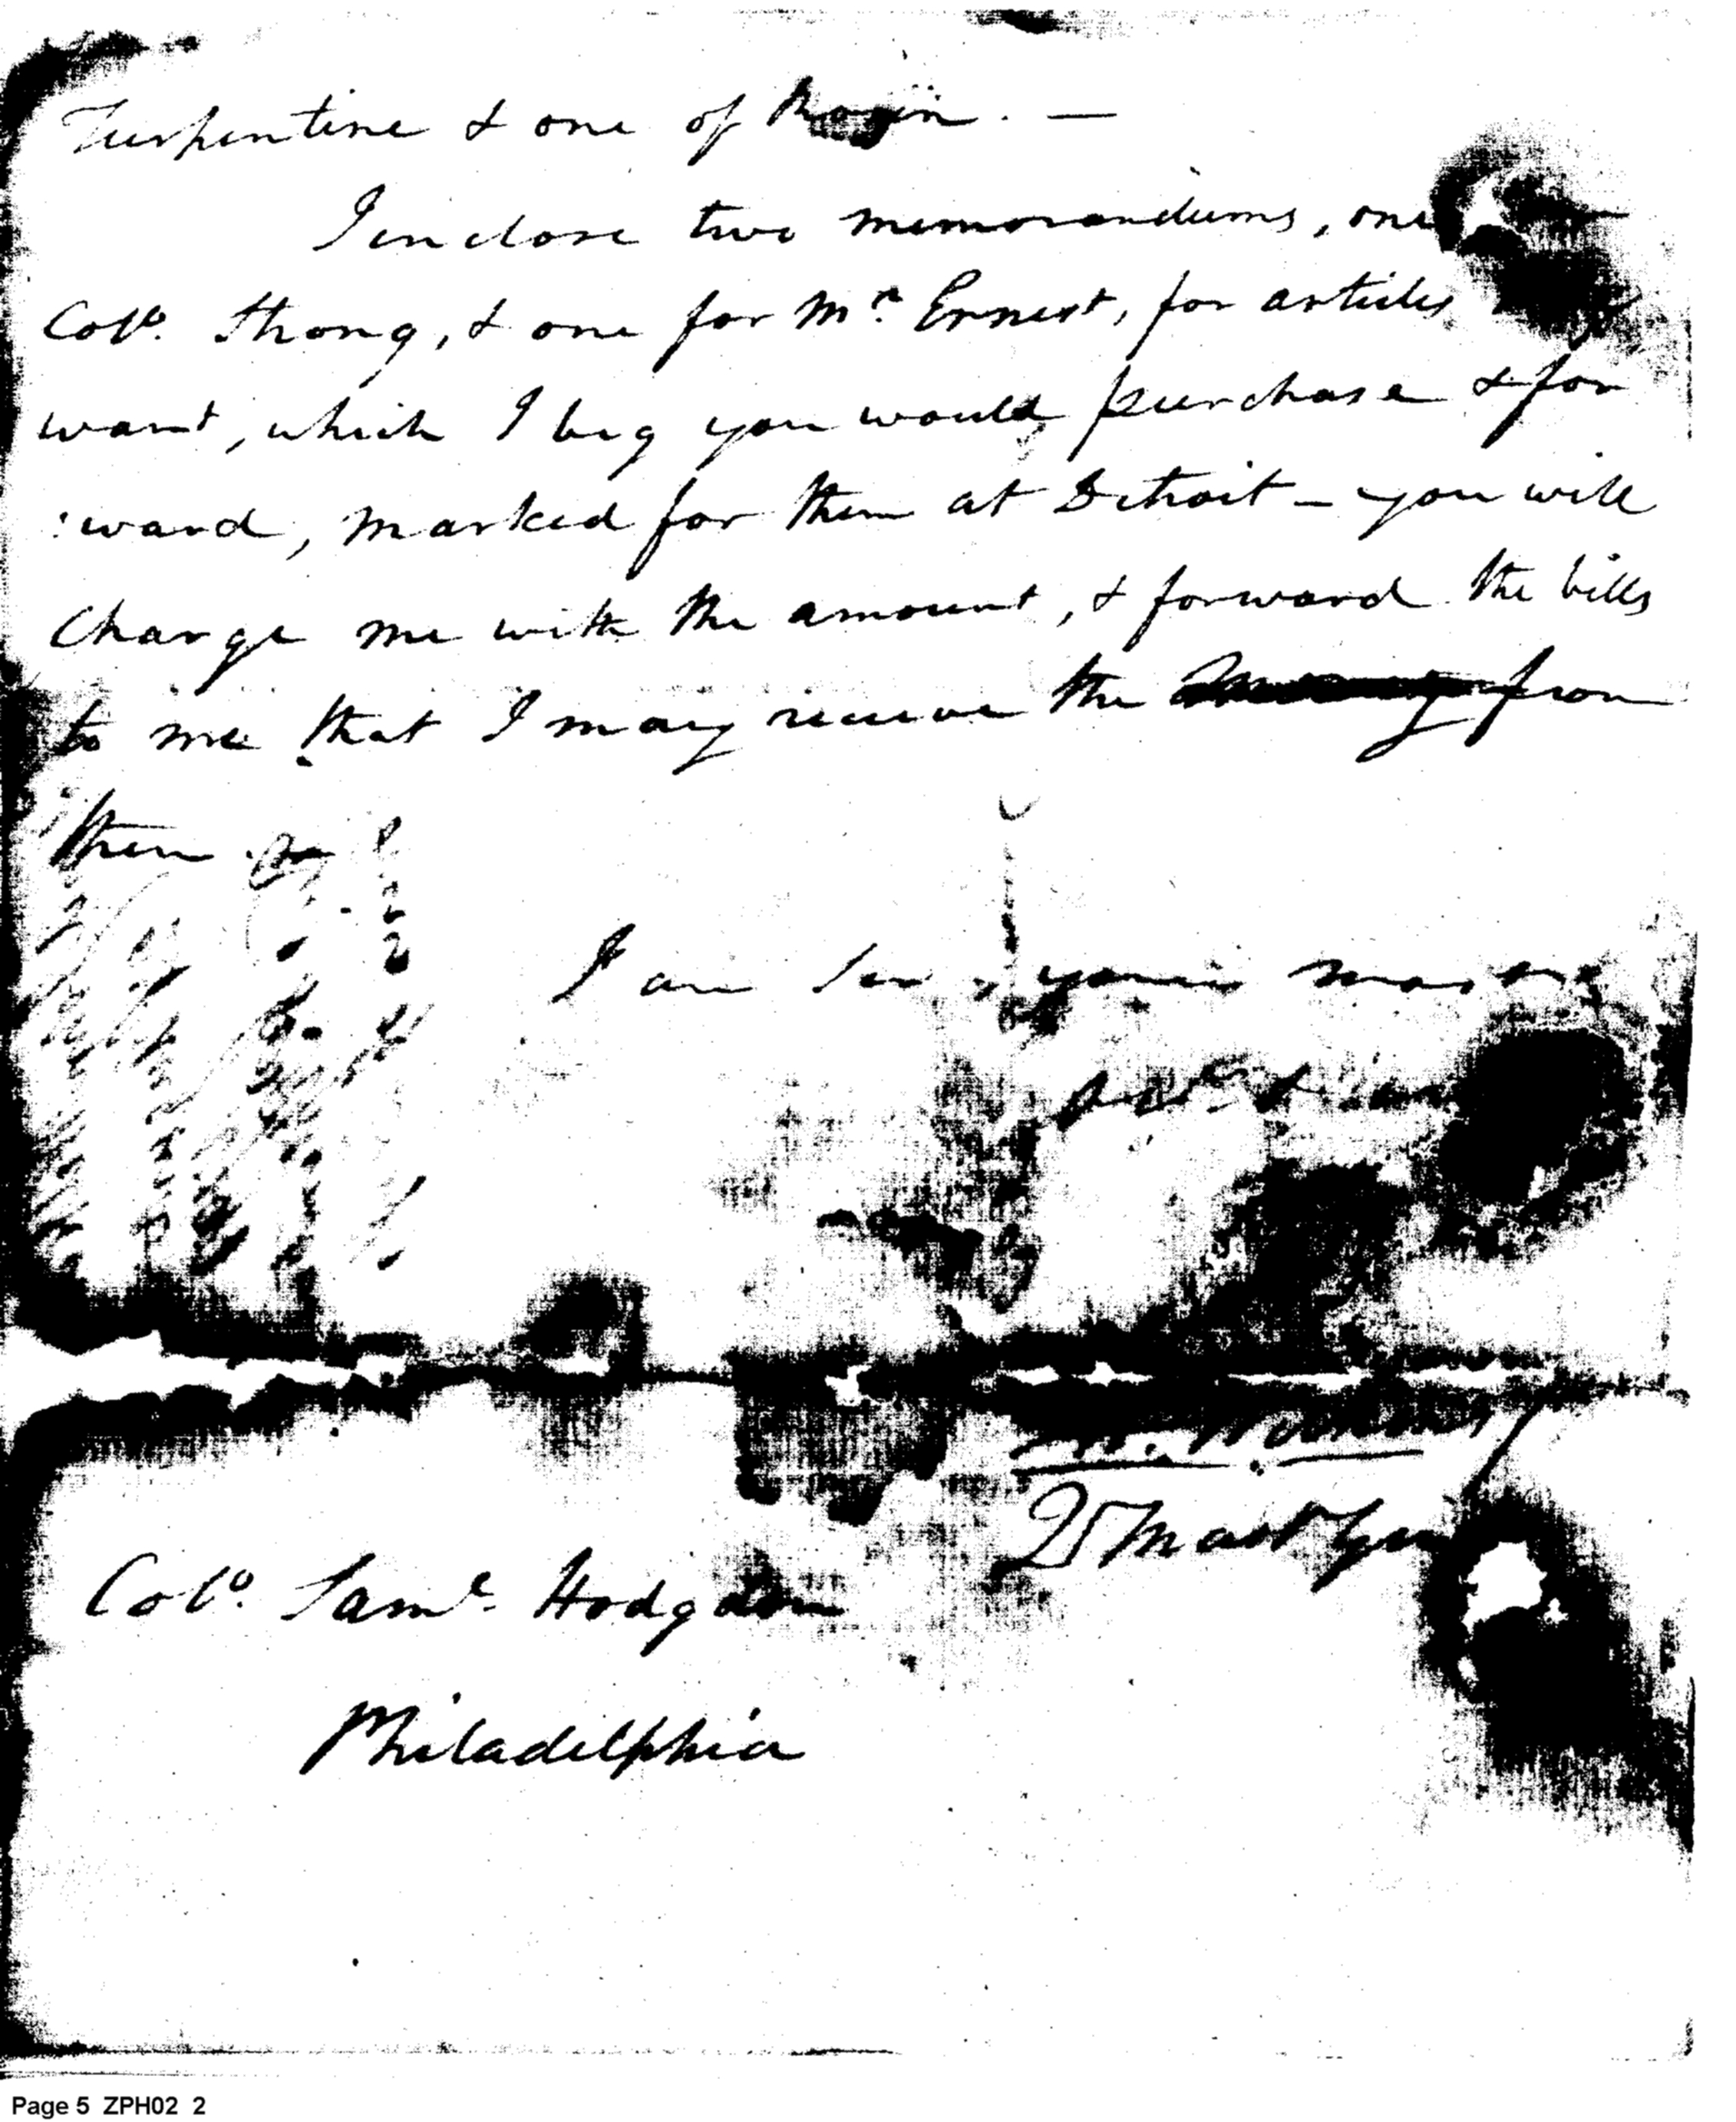 Turpentine & one of Rosin. —
I enclose two memorandums, one
Colo. Strong, & one for Mr. Ernest, for articles
want, which I beg you would purchase & for
:ward, marked for them at Detroit – you will
charge me with the amount, & forward the bills
to me that I may receive the money from
them
I am Sir, your most
25 Mast Gen
Colo. Saml. Hodgdon
Philadelphia
Page 5 ZPH02 2